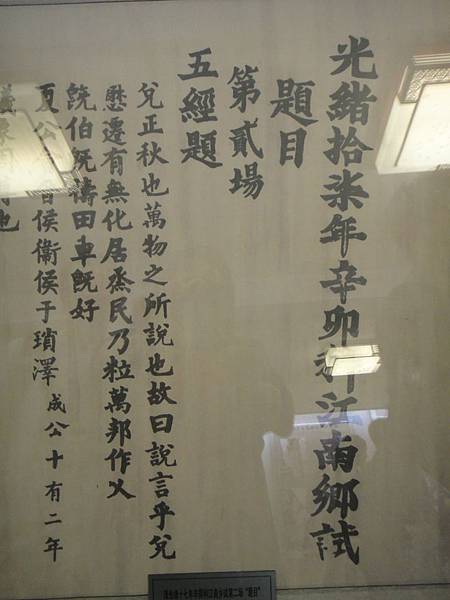 光緒拾柒年辛卯科江南鄉試
題目
第貳場
五經題
兌正秋也萬物之所說也故曰說言乎兌
懋遷有無化居烝民乃粒萬邦作乂
既伯既禱田車既好
夏公會晉侯衛侯于瑣澤 成公十有二年
也